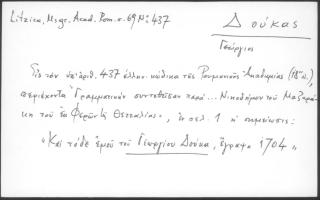 Litzica, Msgr. Acad. Rom. σ. 69 Nο 437
Δούκας
Γεώργιος
Εἰς τὸν ὑπ' ἀριθ. 437 ἑλλην. κώδικα τῆς Ρουμανικῆς Ἀκαδημίας (18ου αἰ.),
περιέχοντα Γραμματικὴν συντεθεῖσαν παρὰ ... Νικοδήμου τοῦ Μαζαρά-
κη τοῦ ἐκ Θεσσαλίας», ἐν σελ. 1 ἡ σημείωσις:
«Καὶ τόδε ἐμοῦ τοῦ Γεωργίου Δούκα, ἔγραψα 1704»